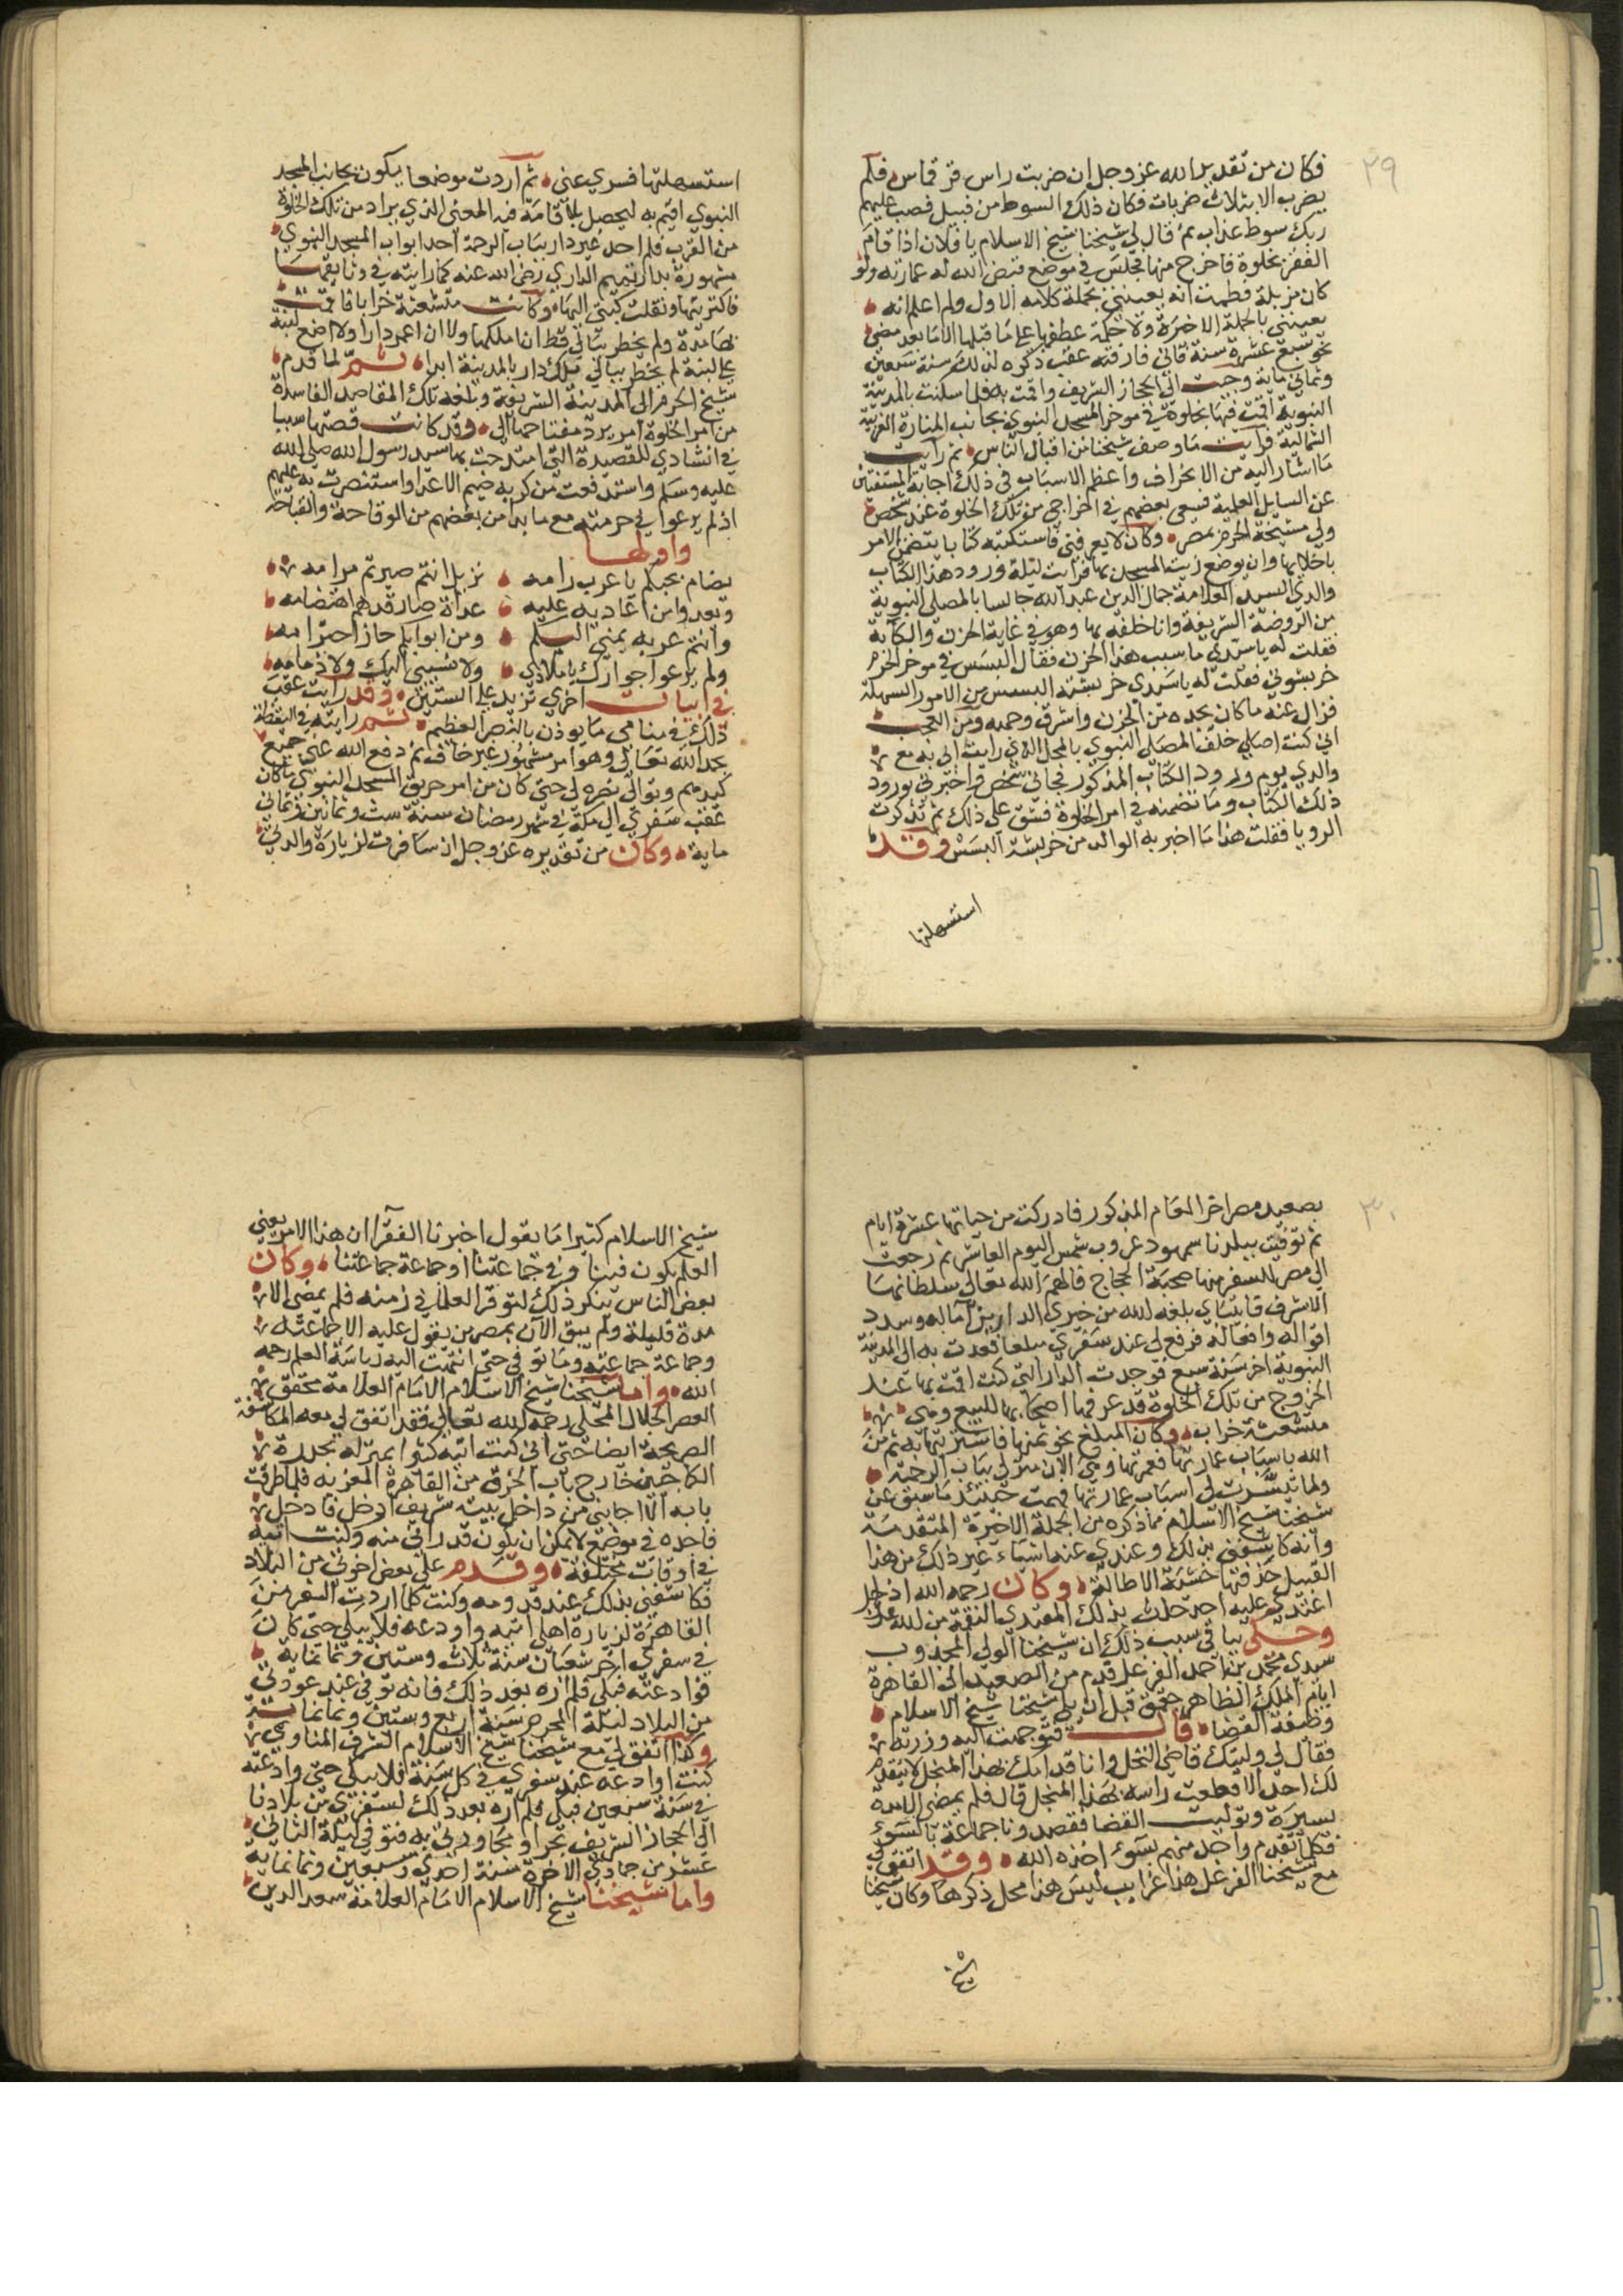 ٢٩
فكان من تقدير الله عز وجل ان ضربت راس قرقماس فلم
يضرب الا بثلاث ضربات فكان ذلك السوط من قبيل فصب عليهم
ربك سوط عذاب ثم قال لي شيخنا شيخ الاسلام يا فلان اذا قام
الفقير بخلوة فاخرج منها فجلس في موضع قيض الله له عمارته ولو
كان مزبلة فطمت انه يعينني بجملة كلامه الاول ولم اعلم انه
يعينني بالجملة الاخيرة ولا حكمة عطفها على ما قبلها الا ما بعد مضي
نحو سبع عشرة سنة فاني فارقته عقب ذكره لذلك سنة سبعين
وثماني ماية وجيت الى الحجاز الشريف واقمت به فلما سكنت بالمدينة
النبوية اقمت فيها بخلوة في موخر المسجد النبوي بجانب المنارة الغربية
الشمالية فرايت ما وصف شيخنا من اقبال الناس ثم رايت
ما اشار اليه من الانحراف واعظم الاسباب في ذلك اجابة المستفتين
عن المسايل العلمية فسعى بعضهم في اخراجي من تلك الخلوة عند شخص
ولي مشيخة الحرم بمصر وكان لا يعرفني فاستكتبه كتابا يتضمن الامر
باخلايها وان يوضع زيت المسجد بها فرايت ليلة ورود هذا الكتاب
والدي السيد العلامة جمال الدين عبد الله جالسا بالمصلى النبوية
من الروضة الشريفة وانا خلفه بها وهو في غاية الحزن والكآبة
فقلت له يا سيدي ما سبب هذا الحزن فقال البسس في موخر الحرم
خربشوني فقلت له يا سيدي خربشة البسس من الامور السهلة
فزال عنه ما كان يجده من الحزن واشرق وجهه ومن العجب
اني كنت اصلي خلف المصلى النبوي بالمحل الذي رايت اني به مع
والدي يوم ورود الكتاب المذكور فجاني شخص فاخبرني بورود
ذلك الكتاب وما تضمنه في امر الخلوة فشق علي ذلك ثم تذكرت
الرويا فقلت هذا ما اخبر به الوالد من خربشة البسس وقد
استسهلتها
استسهلتها فسري عني ثم اردت موضعا يكون بجانب المسجد
النبوي اقيم به ليحصل بالاقامة فيه المعنى الذي يراد من تلك الخلوة
من القرب فلم اجد غير دار بباب الرحمة احد ابواب المسجد النبوي
مشهورة بدار تميم الداري رضي الله عنه كما رايته في وثايقها
فاكتريتها ونقلت كتبي اليها وكانت متشعثة خرابا فاقمت
بها مدة ولم يخطر ببالي قط ان املكها ولا ان اعمر دارا ولا اضع لبنة
على لبنة لم يخطر ببالي تملك دار بالمدينة ابدا ثم لما قدم
شيخ الحرم الى المدينة الشريفة وبلغه تلك المقاصد الفاسدة
من امر الخلوة امر برد مفتاحها الي وقد كانت قصتها سببا
في انشادي للقصيدة التي امتدحت بها سيد رسول الله صلى الله
عليه وسلم واستدفعت من كربه ضيم الاعدا واستنصرت به عليهم
اذ لم يرعوا في حرمته مع ما بدا من بعضهم من الوقاحة والقباحة
واولها
يضام بحبكم يا عرب رامه نزيل انتم صيرتم مرامه
وتعدوا من اعاديه عليه عداة صار قدهم اهتضامه
وانتم عربه يمنى اليكم ومن ابوابكم حاز احترامه
ولم يرعوا جوارك يا ملاذي ولا نسبي اليك ولا ذمامه
في ابيات اخرى تزيد على الستين وقد رايت عقب
ذلك في منامي ما يوذن بالنصر العظيم ثم رايته في اليقظة
بحمد الله تعالى وهو امر مشهور غير خاف ثم دفع الله عني جميع
كيدهم وتوالى نصره لي حتى كان من امر حريق المسجد النبوي ما كان
عقب سفري الى مكة في شهر رمضان سنة ست وثمانين وثماني
ماية وكان من تقديره عز وجل ان سافرت لزيارة والدتي
٣٠
بصعيد مصر اخر العام المذكور فادركت من حياتها عشرة ايام
ثم توفيت ببلدنا سمهود غروب شمس اليوم العاشر ثم رجعت
الى مصر للسفر منها صحبة الحجاج فالهم الله تعالى سلطانها
الاشرف قايتباي بلغه الله من خيري الدارين آماله وسدد
اقواله وافعاله فدفع لي عند سفري مبلغا فعدت به الى المدينة
النبوية اخر سنة سبع فوجدت الدار التي كنت اقمت بها عند
الخروج من تلك الخلوة قد عرضها اصحابها للبيع وهي
متشعثة خراب وكان المبلغ نحو ثمنها فاشتريتها به ثم من
الله باسباب عمارتها فعمرتها وهي الان منزلي بباب الرحمة
ولما تيسرت لي اسباب عمارتها فهمت حينئذ ما سبق عن
شيخنا شيخ الاسلام مما ذكره من الجملة الاخيرة المتقدمة
وانه كاشفني بذلك وعندي عنه اشياء غير ذلك من هذا
القبيل حذفتها خشية الاطالة وكان رحمه الله اذا
اعتدى عليه احد حلت بذلك المعتدي النقمة من الله عز وجل
وحكى لنا في سبب ذلك ان شيخنا الولي المجذوب
سيدي محمد بن احمد الفرغل قدم من الصعيد الى القاهرة
ايام الملك الظاهر جقمق قبل ان يلي شيخنا شيخ الاسلام
وظيفة القضا قال فتوجهت اليه وزرته
فقال لي وليتك قاضي النخل وانا قدامك بهذا المنجل لا يتقدم
لك احد الا قطعت راسه بهذا المنجل قال فلم يمضي الا مدة
يسيرة وتوليت القضا فقصدونا جماعة بالسوء
فكلما تقدم واحد منهم بسوء اخذه الله وقد اتفق لي
مع شيخنا الفرغل هذا غرايب ليس هذا محل ذكرها وكان شيخنا
شيخ
شيخ الاسلام كثيرا ما يقول اخبرنا الفقرا ان هذا الامر يعني
العلم يكون فينا وفي جماعتنا او جماعة جماعتنا وكان
بعض الناس ينكر ذلك لتوفر العلما في زمنه فلم يمضي الا
مدة قليلة ولم يبق الآن بمصر من يعول عليه الا جماعته
وجماعة جماعته وما توفي حتى انتهت اليه رياسة العلم رحمه
الله واما شيخنا شيخ الاسلام الامام العلامة محقق
العصر الجلال المحلي رحمه الله تعالى فقد اتفق لي معه المكاشفة
الصريحة ايضا حتى اني كنت اتيه كثيرا بمنزله بحدرة
الكماجيين خارج باب الخرق من القاهرة المعزية فلما طرقت
بابه الا اجابني من داخل بيته شريف ادخل فادخل
فاجده في موضع لا يمكن ان يكون قد راني منه وكنت اتيه
في اوقات مختلفة وقدم علي بعض اخوتي من البلاد
فكاشفني بذلك عند قدومه وكنت كلما اردت السفر من
القاهرة لزيارة اهلي اتيه واودعه فلا يبكي حتى كان
في سفري اخر شعبان سنة ثلاث وستين وثمانماية
فوادعته فبكى فلم اره بعد ذلك فانه توفي عند عودتي
من البلاد ليلة المحرم سنة اربع وستين وثمانماية
وكذا اتفق لي مع شيخنا شيخ الاسلام الشرف المناوي
كنت اوادعه عند سفري في كل سنة فلا يبكي حتى وادعته
في سنة سبعين فبكى فلم اره بعد ذلك لسفري من بلادنا
الى الحجاز الشريف بحرا ومجاورتي به فتوفي ليلة الثاني
عشر من جمادى الاخرة سنة احدى وسبعين وثمانماية
واما شيخنا شيخ الاسلام الامام العلامة سعد الدين